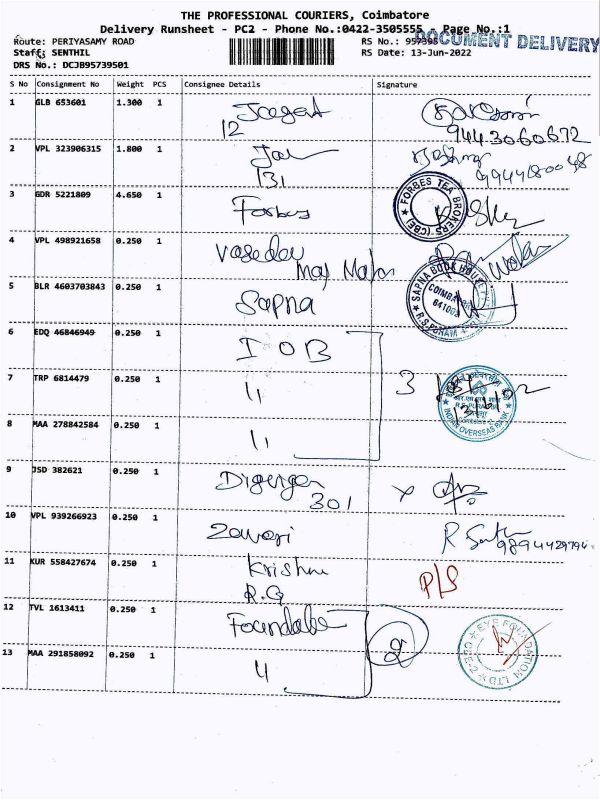 THE PROFESSIONAL COURIERS, Coimbatore
Delivery Runsheet - PC2 - Phone No.:0422-3505555 - Page No.:1
DOCUMENT DELIVERY
Route: PERIYASAMY ROAD RS No.: 957395
Staff: SENTHIL RS Date: 13-Jun-2022
DRS No.: DCJB95739501
S No Consignment No Weight PCS Consignee Details Signature
1 GLB 653601 1.300 1
12 9443060672
2 VPL 323906315 1.800 1
131
3 GDR 5221809 4.650 1 Forbes
FORBES TEA BROKERS (CBE)
4 VPL 498921658 0.250 1 Vasedev
5 BLR 4603703843 0.250 1 Sapna
SAPNA BOOK HOUSE
COIMBATORE
R.S.PURAM
6 EDQ 46846949 0.250 1 IOB
7 TRP 6814479 0.250 1 11 3
INDIAN OVERSEAS BANK
8 MAA 278842584 0.250 1 11
9 JSD 382621 0.250 1
301 x
10 VPL 939266923 0.250 1 Zaveri
11 KUR 558427674 0.250 1 Krishna P/S
R.G
12 TVL 1613411 0.250 1 Foundation 2
EYE FOUNDATION LTD
13 MAA 291858092 0.250 1 4